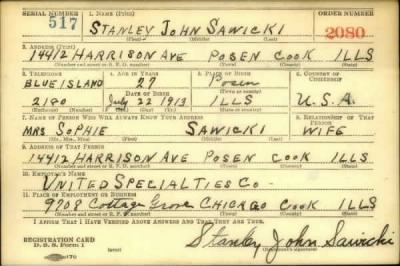 SERIAL NUMBER 1. NAME (Print) ORDER NUMBER
517 STANLEY JOHN SAWICKI 2080
(First) (Middle) (Last)
2. ADDRESS (Print)
14412 HARRISON AVE POSEN COOK ILLS
(Number and street or R. F. D. number) (Town) (County) (State)
3. TELEPHONE 4. AGE IN YEARS 5. PLACE OF BIRTH 6. COUNTRY OF CITIZENSHIP
BLUE ISLAND 27 Posen
DATE OF BIRTH (Town or county)
2180 July 22 1913 ILLS U.S.A.
(Exchange) (Number) (Mo.) (Day) (Yr.) (State or country)
7. NAME OF PERSON WHO WILL ALWAYS KNOW YOUR ADDRESS 8. RELATIONSHIP OF THAT PERSON
MRS SOPHIE SAWICKI WIFE
(Mr., Mrs., Miss) (First) (Middle) (Last)
9. ADDRESS OF THAT PERSON
14412 HARRISON AVE POSEN COOK ILLS
(Number and street or R. F. D. number) (Town) (County) (State)
10. EMPLOYER'S NAME
UNITED SPECIALTIES CO-
11. PLACE OF EMPLOYMENT OR BUSINESS
9708 Cottage Grove CHICAGO COOK ILLS
(Number and street or R. F. D. number) (Town) (County) (State)
I AFFIRM THAT I HAVE VERIFIED ABOVE ANSWERS AND THAT THEY ARE TRUE.
REGISTRATION CARD
D. S. S. Form 1 Stanley John Sawicki
(Registrant's signature)